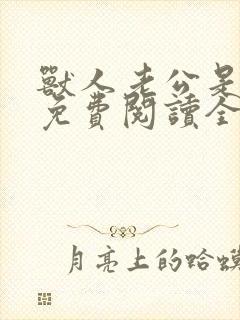 獸人老公是
免費閱讀全
月亮上的蛤蟆